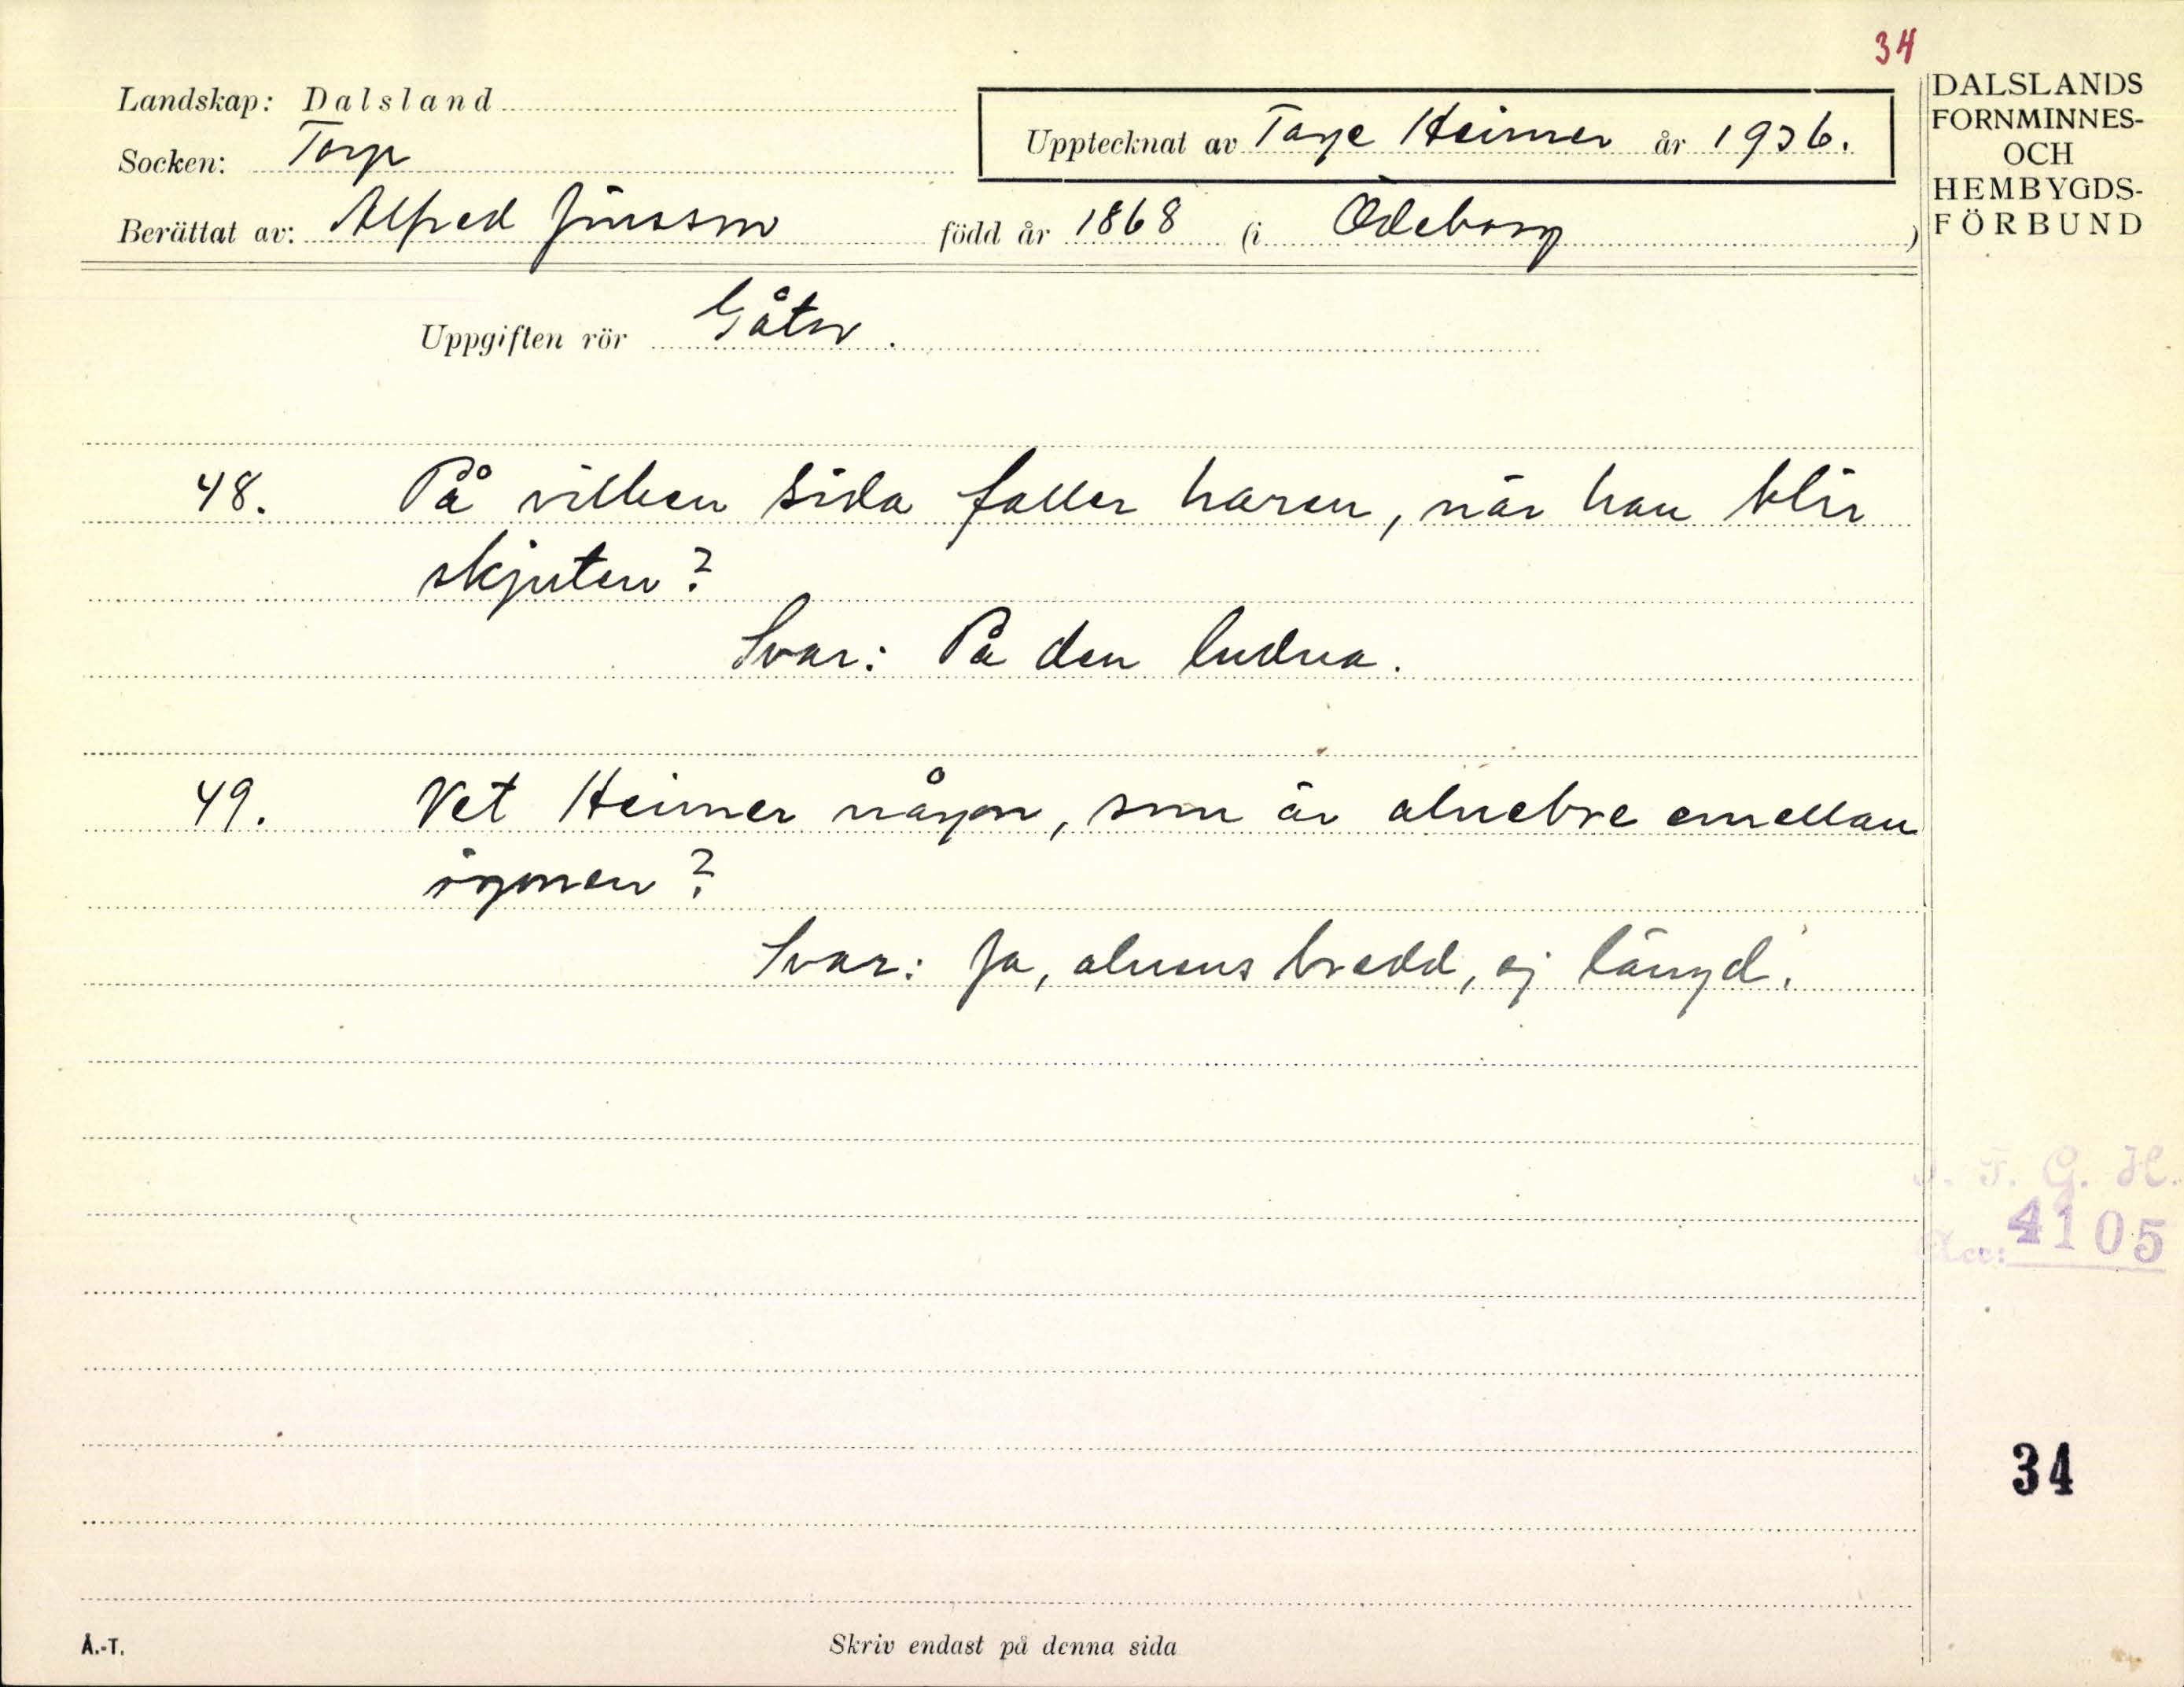 34
Landskap: Dalsland
Socken: Torp
Upptecknat av Tage Heimer år 1936.
Berättat av: Alfred Jönsson född år 1868 (i Ödeborg)
DALSLANDS
FORNMINNES-
OCH
HEMBYGDS-
FÖRBUND
Uppgiften rör Gåtor.
48. På vilken sida faller haren, när han blir
skjuten?
Svar: På den ludna.
49. Vet Heimer någon, som är alnebre emellan
ögonen?
Svar: Ja, alnens bredd, ej längd.
I. F. G. H.
Acc: 4105
34
Å.-T.
Skriv endast på denna sida